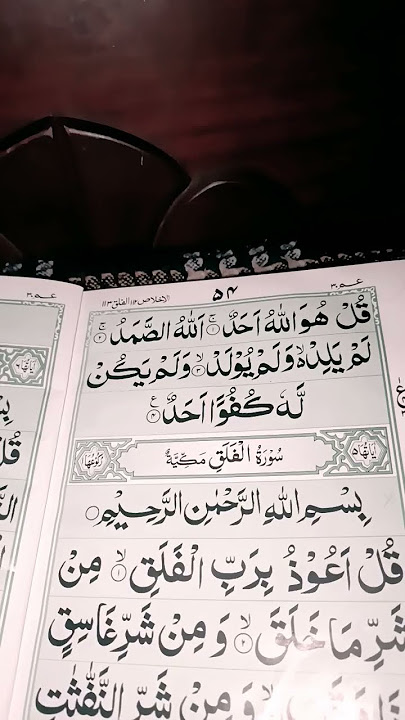 عم ٣٠
٥٤
الاخلاص ١١٢ الفلق ١١٣
قُلْ هُوَ اللّٰهُ اَحَدٌ ۚ﴿١﴾ اَللّٰهُ الصَّمَدُ ۚ﴿٢﴾
لَمْ يَلِدْ ۙ۬ وَلَمْ يُوْلَدْ ۙ﴿٣﴾ وَلَمْ يَكُنْ
لَّهٗ كُفُوًا اَحَدٌ ﴿٤﴾
اٰيَاتُهَا ٥ سُوْرَةُ الْفَلَقِ مَكِّيَّةٌ رُكُوْعُهَا
بِسْمِ اللّٰهِ الرَّحْمٰنِ الرَّحِيْمِ
قُلْ اَعُوْذُ بِرَبِّ الْفَلَقِ ۙ﴿١﴾ مِنْ
شَرِّ مَا خَلَقَ ۙ﴿٢﴾ وَ مِنْ شَرِّ غَاسِقٍ
وَ مِنْ شَرِّ النَّفّٰثٰتِ
عم ٣٠